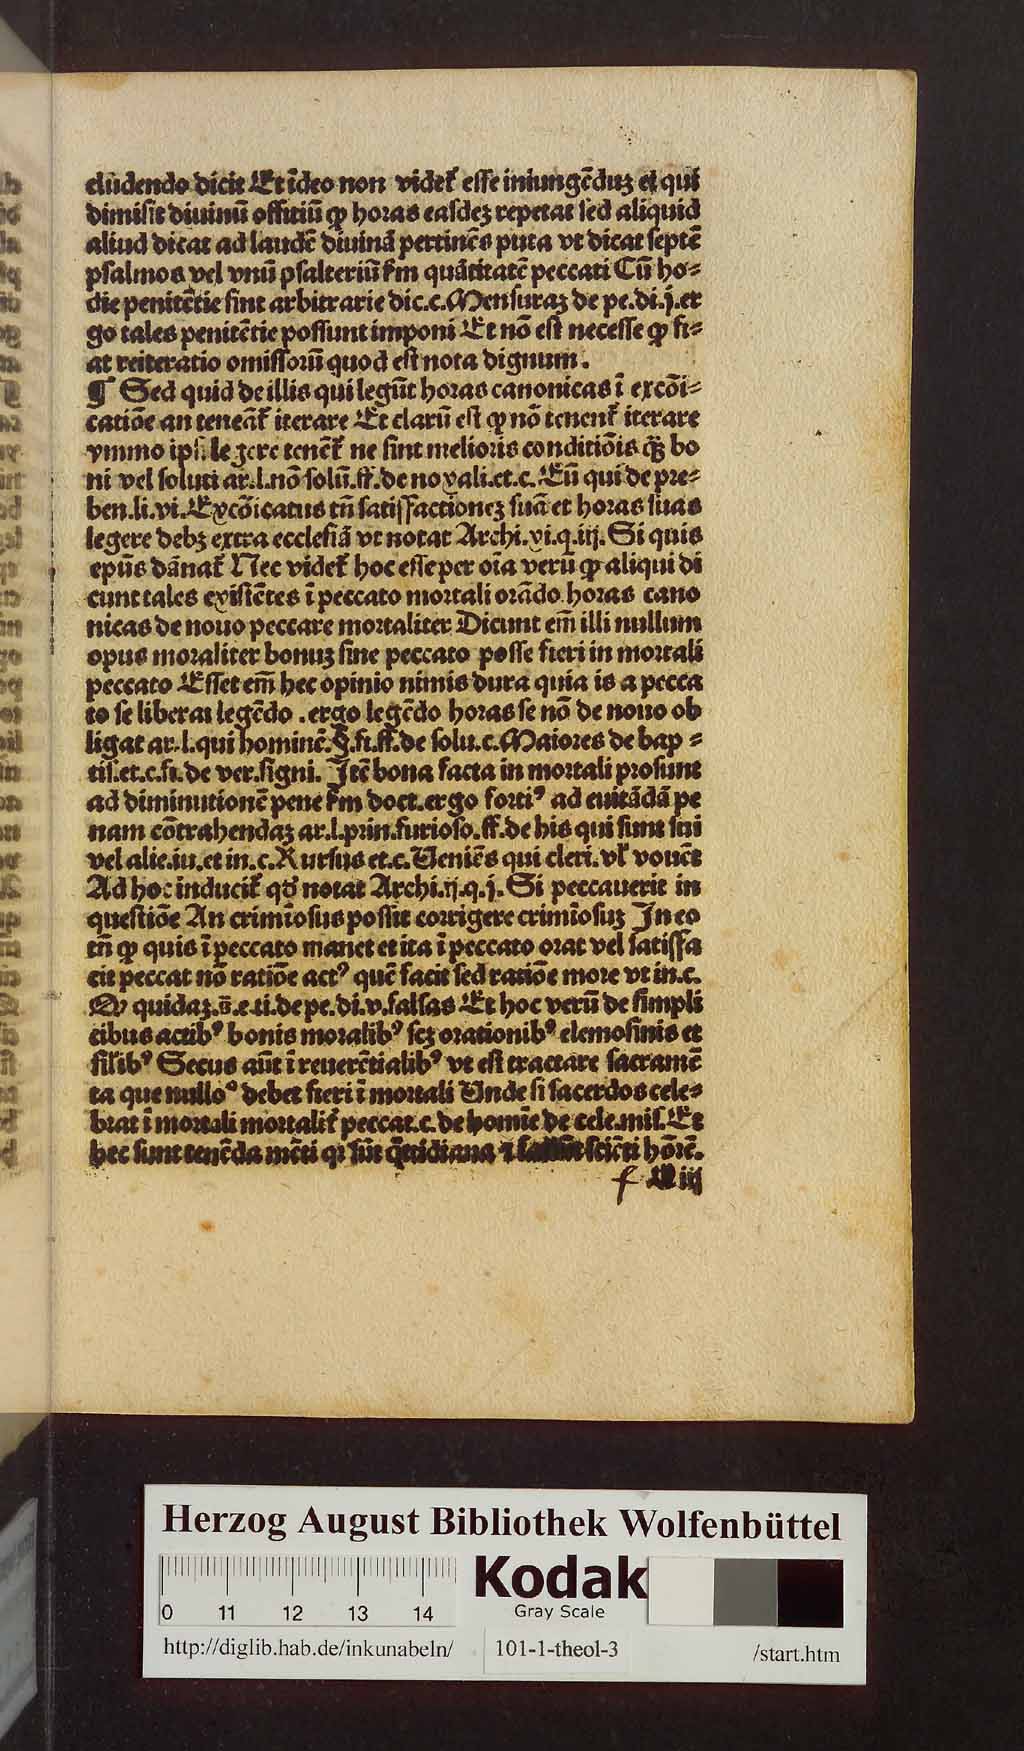 cludendo dicit Et ĩdeo non videt᷑ esse iniungẽduʒ ei qui
dimisit diuinũ offitiũ ꝙ horas easdeʒ repetat sed aliquid
aliud dicat ad laudẽ diuinã pertinẽs puta vt dicat septẽ
psalmos vel vnũ psalteriũ ẜm quãtitatẽ peccati Cũ ho⸗
die penitẽtie sint arbitrarie dic.c. Mensuraʒ de pe.di.j.er
go tales penitẽtie possunt imponi Et nõ est necesse ꝙ fi⸗
at reiteratio omissorũ quod est nota dignum.
¶ Sed quid de illis qui legũt horas canonicas ĩ excõi⸗
catiõe an teneãt᷑ iterare Et clarũ est ꝙ nõ tenent᷑ iterare
ymmo ipsi legere tenẽt᷑ ne sint melioris conditiõis qʒ̃ bo
ni vel soluti ar.l.nõ solũ.ff.de no.vali.et.c. Eũ qui de pre⸗
ben.li.vi. Excõicatus tñ satisfactioneʒ suã et horas suas
legere debʒ extra ecclesiã vt notat Archi.xi.q.iij. Si quis
ep̃us dãnat᷑ Nec videt᷑ hoc esse per oĩa verũ ꝙ aliqui di
cunt tales existẽtes ĩ peccato mortali orãdo horas cano
nicas de nouo peccare mortaliter Dicunt em̃ illi nullum
opus moraliter bonuʒ sine peccato posse fieri in mortali
peccato Esset em̃ hec opinio nimis dura quia is a pecca
to se liberat legẽdo .ergo legẽdo horas se nõ de nouo ob
ligat ar.l.qui hominẽ.§.fi.ff.de solu.c. Maiores de bap ⸗
tis.et.c.fi.de ver.signi. Itẽ bona facta in mortali prosunt
ad diminutionẽ pene ẜm doct.ergo fortiꝰ ad euitãdã pe
nam cõtrahendaʒ ar.l.prin.furioso.ff.de his qui sunt sui
vel alie.iu.et in.c. Rursus et.c. Veniẽs qui cleri.vl᷑ vouẽt
Ad hoc inducit᷑ qđ notat Archi.ij.q.j. Si peccauerit in
questiõe An crimiõsus possit corrigere crimiõsuʒ In eo
tñ ꝙ quis ĩ peccato manet et ita ĩ peccato orat vel satisfa
cit peccat nõ ratiõe actꝰ quẽ facit sed ratiõe more vt in.c.
Qᷓ quidaʒ.§.e.ti.de pe.di.v.falsas Et hoc verũ de simpli
cibus actibꝰ bonis moralibꝰ scʒ orationibꝰ elemosinis et
sĩlibꝰ Secus aũt ĩ reuerẽtialibꝰ vt est tractare sacramẽ
ta que nulloº debet fieri ĩ mortali Vnde si sacerdos cele⸗
brat ĩ mortali mortalit᷑ peccat.c. de homĩe de cele.mis. Et
hec sunt tenẽda mẽti qꝛ sũt q̃tidiana ⁊ sciẽti hõrẽ.
iij
Herzog August Bibliothek Wolfenbüttel
0 11 12 13 14
Kodak
Gray Scale
http://diglib.hab.de/inkunabeln/ 101-1-theol-3 /start.htm